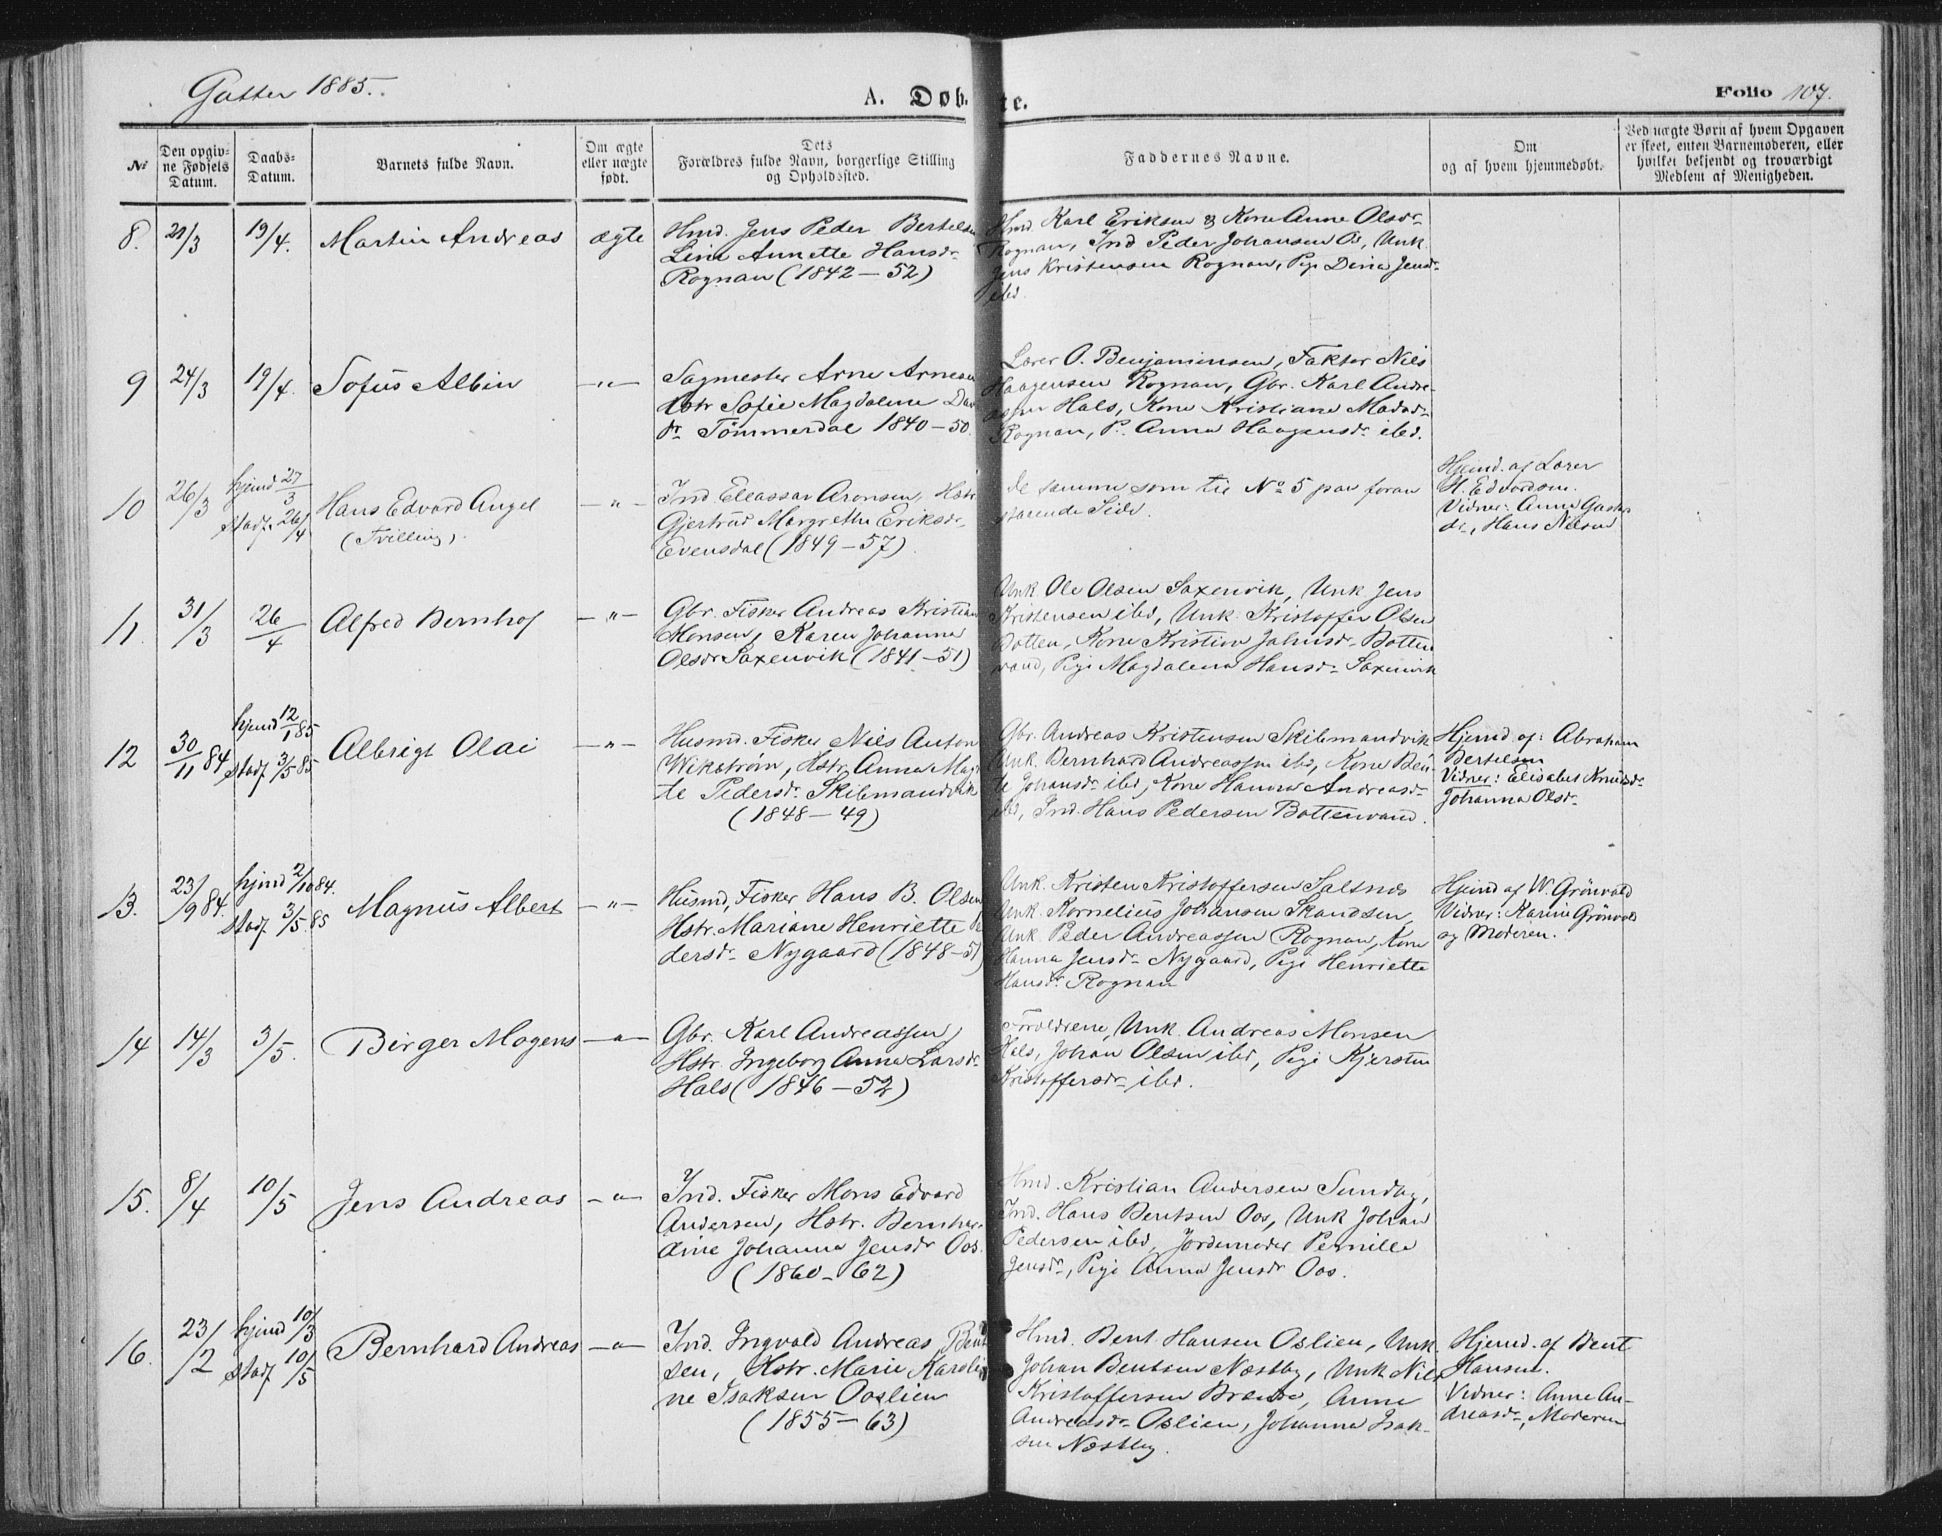 Gutter 1885.
A. Døbte.
Folio 107.
№
Den opgivne Fødsels Datum.
Daabs-Datum.
Barnets fulde Navn.
Om ægte eller uægte født.
Dets Forældres fulde Navn, borgerlige Stilling og Opholdssted.
Faddernes Navne.
Om og af hvem hjemmedøbt.
Ved uægte Børn af hvem Opgaven er skeet, enten Barnemoderen, eller hvilket bekjendt og troværdigt Medlem af Menigheden.
8. 21/3 19/4. Martin Andreas ægte
Hmd. Jens Peder Bertelsen
Lina Annette Hansdr
Rognan (1842–52)
Hmd. Karl Eriksen & Kone Anne Olsdr
Rognan, Ind Peder Johansen Os, Unk.
Jens Kristensen Rognan, Pige Dina Jensdr
ibd.
9 24/3 19/4. Sofus Albin –"–
Sagmester Arne Arnesen
Hstr Sofie Magdalene Dan
dr Tömmerdal 1840–50.
Lærer O. Benjaminsen, Faktor Nils
Haagensen Rognan, Gbr. Karl Andre-
assen Hals, Kone Kristiane Madsdr
Rognan, P. Anna Haagensdr ibd.
10 26/3 hjemd 27/3 stadf. 26/4 Hans Edvard Angel
(Tvilling). –"–
Ind. Eleassar Aronsen, Hstr
Gjertrud Margrethe Eriksdr
Evensdal (1849–57).
De samme som til No 5 paa foran
staaende Side.
Hjemd. af Lærer
H. Edvardsen.
Vidner: Anne Gasts
dr, Hans Nilsen
11. 31/3 26/4 Alfred Bernhof –"–
Gbr. Fisker Andreas Kristian
Monsen, Karen Johanna
Olsdr Saxenvik (1841–51)
Unk Ole Olsen Saxenvik, Unk Jens
Kristensen ibd, Unk. Kristoffer Olsen
Botten, Kone Kristine Johnsdr Botten
vand, Pige Magdalena Hansdr Saxenvik
12 30/11 84 hjemd 12/1 85 stadf 3/5 85 Albrigt Olai –"–
Husmd. Fisker Nils Anton
Wikström, Hstr. Anna Magr
te Pedersdr. Skibmandvik
(1848–49)
Gbr. Andreas Kristensen Skibmandvik
Unk. Bernhard Andreassen ibd, Kone Ben-
te Johansdr ibd, Kone Hanna Andreasdr
ibd, Ind. Hans Pedersen Bottenvand.
Hjemd. af: Abraham
Bertelsen
Vidner: Elisabet Knudsdr
Johanna Olsdr
13. 23/9 84. hjemd 2/10 84. stadf 3/5 85 Magnus Albert –"–
Husmd, Fisker Hans B. Olsen
Hstr. Mariane Henriette Pe
dersdr Nygaard (1848–51)
Unk. Kristen Kristoffersen Saltnes
Unk. Kornelius Johansen Skandsen,
Unk. Peder Andreassen Rognan, Kone
Hanna Jensdr Nygaard, Pige Henriette
Hansdr Rognan
Hjemd af W. Grönvold
Vidner: Karine Grönvold
og Moderen.
14 14/3 3/5. Birger Mogens –"–
Gbr. Karl Andreassen,
Hstr. Ingeborg Anna Larsdr
Hals (1846–52)
Forældrene, Unk. Andreas Monsen
Hals, Johan Olsen ibd, Pige Kjersten
Kristoffersdr ibd.
15. 8/4 10/5 Jens Andreas –"–
Ind. Fisker Mons Edvard
Andersen, Hstr. Bernhar-
dine Johanna Jensdr Oos.
(1860–62)
Hmd. Kristian Andersen Sundby,
Ind. Hans Bentsen Oos, Unk Johan
Pedersen ibd, Jordemoder Pernille
Jensdr, Pige Anna Jensdr Oos.
16. 23/2 hjemd 10/3 stadf 10/5 Bernhard Andreas –"–
Ind. Ingvald Andreas Bent
sen, Hstr. Marie Karoli
ne Isaksen Ooslien
(1855–63)
Hmd. Bent Hansen Oslien, Unk
Johan Bentsen Næstby, Unk Nils
Kristoffersen Brænne, Anne
Andreasdr Oslien, Johanna Isak-
sen Næstby.
Hjemd. af Bent
Hansen.
Vidner: Anne An-
dreasdr, Moderen